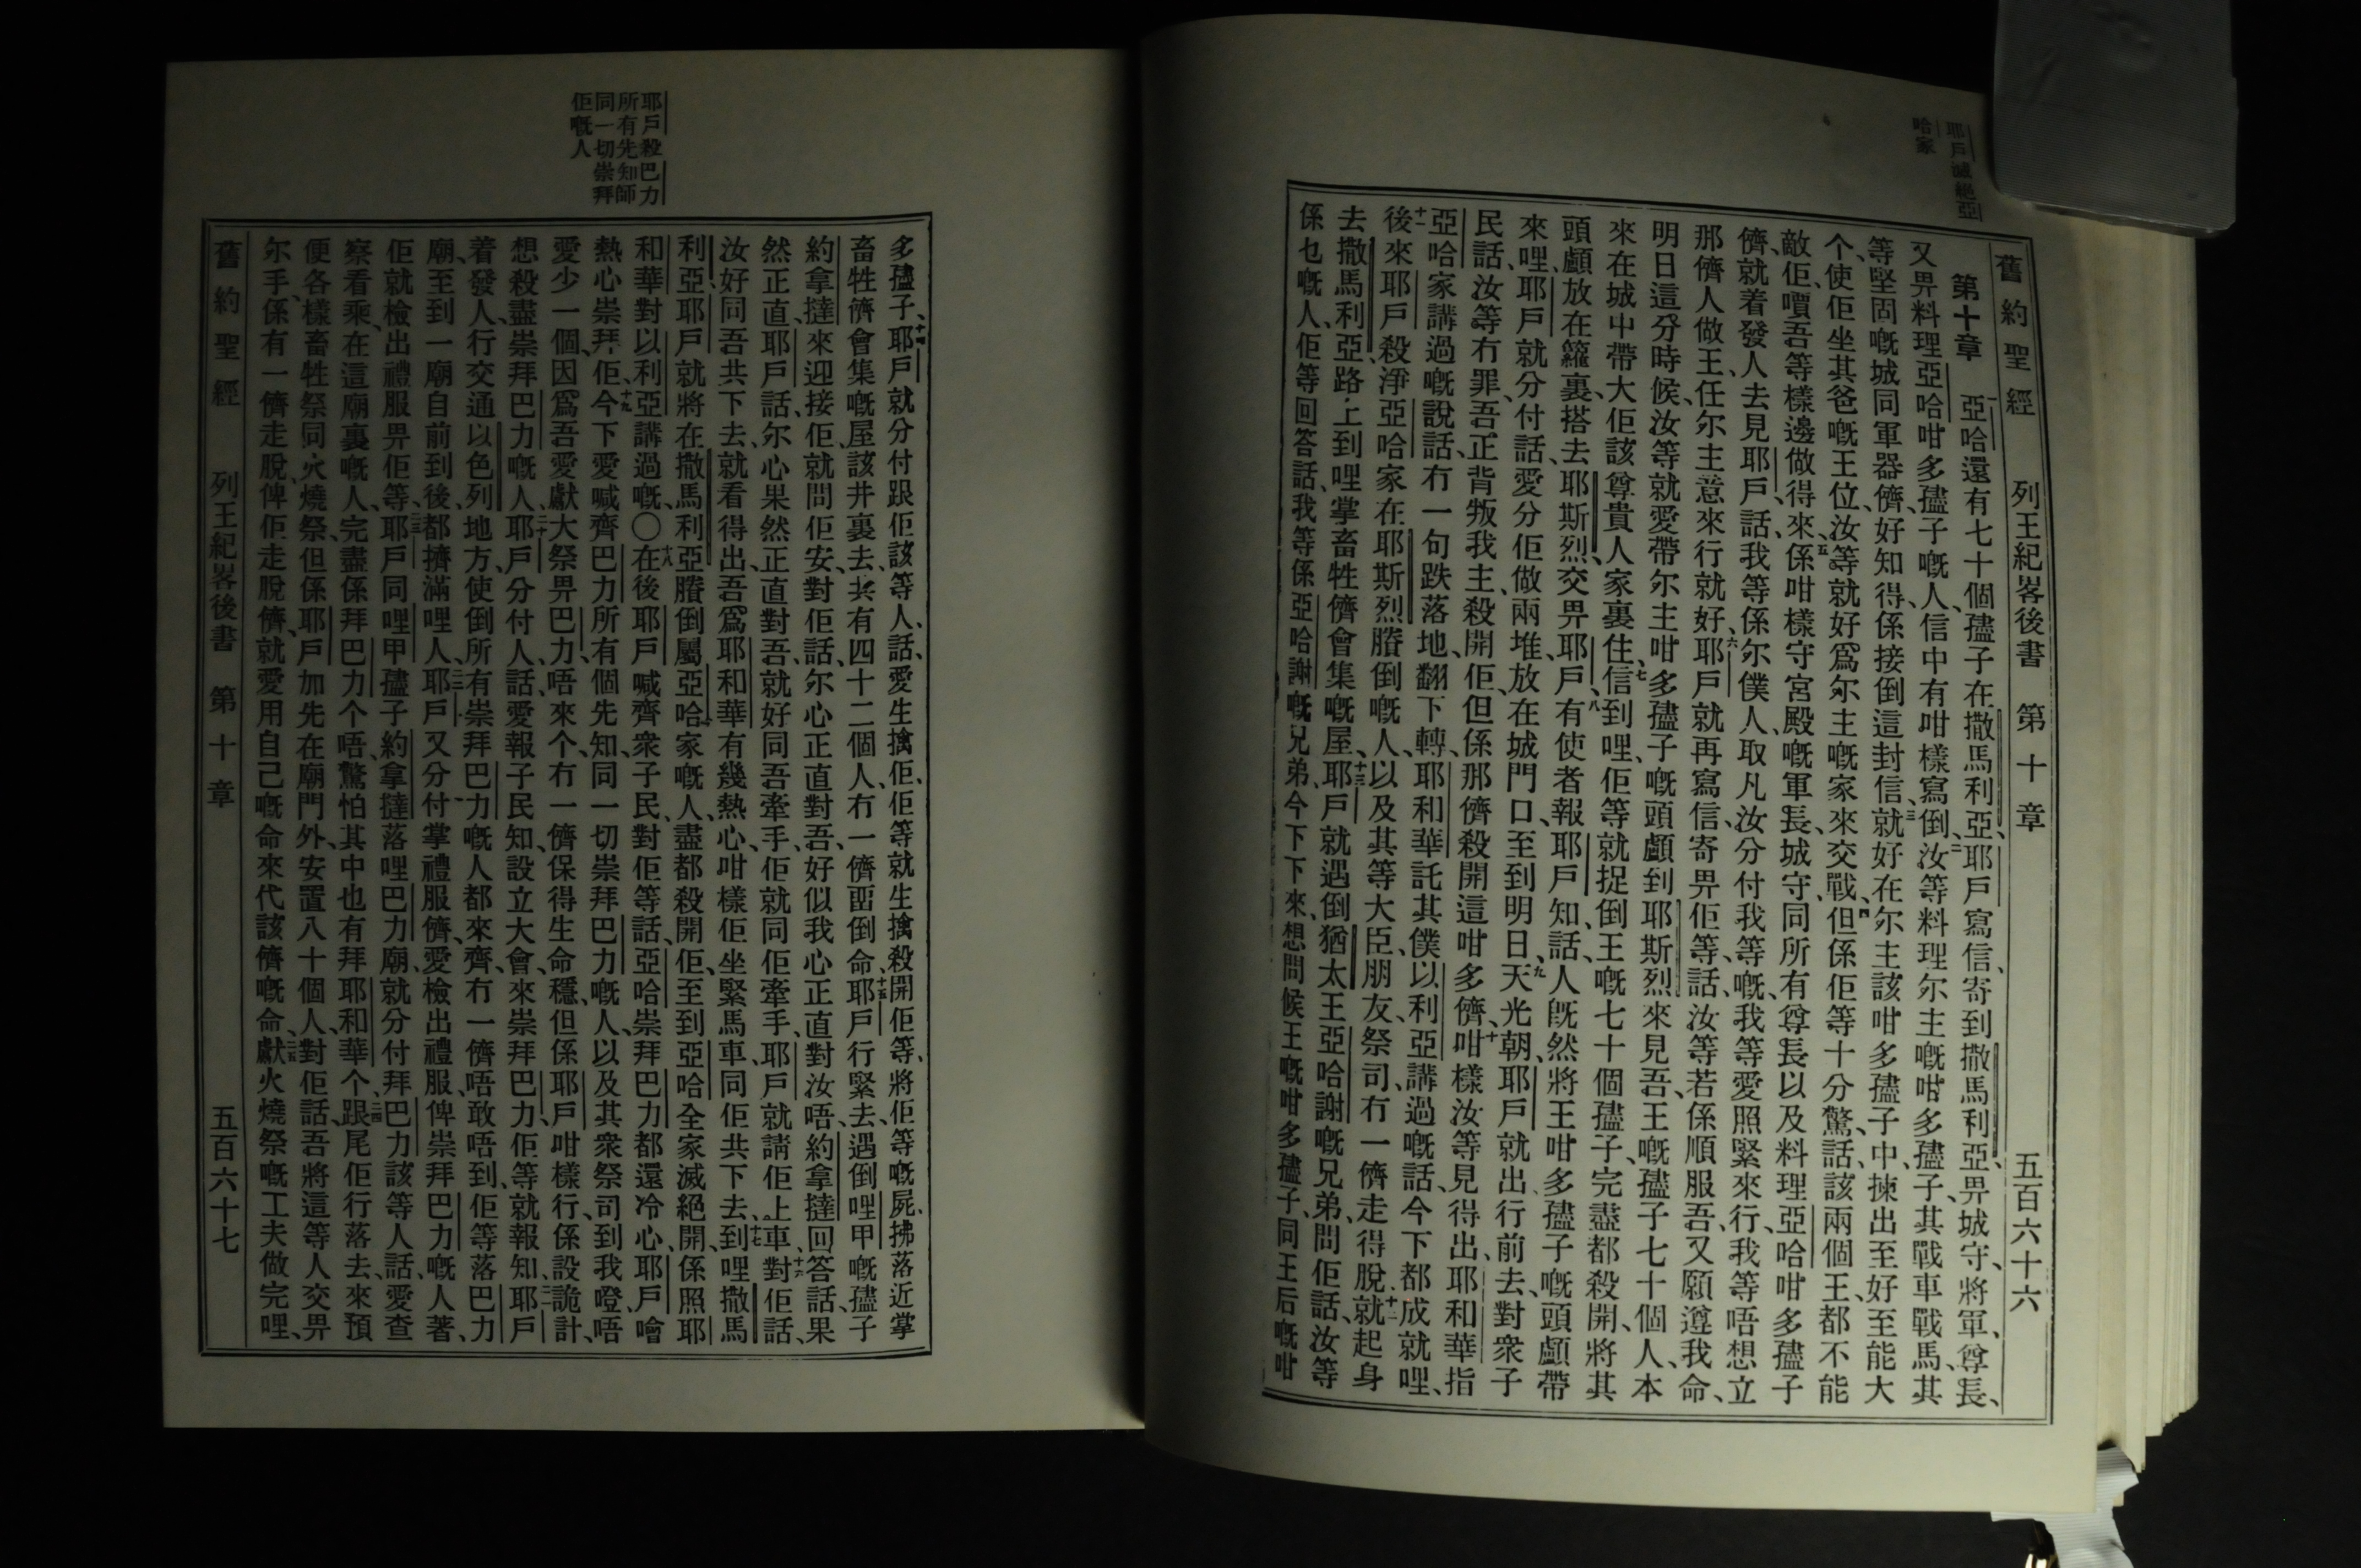 耶戶滅絕亞
哈家
舊約聖經 列王紀畧後書 第十章 五百六十六
第十章 一亞哈還有七十個孻子在撒馬利亞、耶戶寫信、寄到撒馬利亞、畀城守、將軍、尊長、
又畀料理亞哈咁多孻子嘅人、信中有咁樣寫倒、二汝等料理尔主嘅咁多孻子、其戰車戰馬、其
等堅固嘅城同軍器儕、好知得、係接倒這封信、三就好在尔主該咁多孻子中、揀出至好至能大
个、使佢坐其爸嘅王位、汝等就好爲尔主嘅家來交戰、四但係佢等十分驚、話、該兩個王、都不能
敵佢、嘪吾等樣邊做得來、五係咁樣守宮殿嘅軍長、城守、同所有尊長以及料理亞哈咁多孻子
儕、就着發人去見耶戶、話、我等係尔僕人、取凡汝分付我等嘅、我等愛照緊來行、我等唔想立
那儕人做王、任尔主意來行就好、六耶戶就再寫信、寄畀佢等、話、汝等若係順服吾、又願遵我命、
明日這分時候、汝等就愛帶尔主咁多孻子嘅頭顱到耶斯烈來見吾、王嘅孻子七十個人、本
來在城中帶大佢該尊貴人家裏住、七信到哩、佢等就捉倒王嘅七十個孻子、完盡都殺開、將其
頭顱放在籮裏、搭去耶斯烈、交畀耶戶、八有使者報耶戶知、話、人既然將王咁多孻子嘅頭顱帶
來哩、耶戶就分付話、愛分佢做兩堆、放在城門口、至到明日、九天光朝、耶戶就出行前去、對衆子
民話、汝等冇罪、吾正背叛我主、殺開佢、但係那儕殺開這咁多儕、十咁樣汝等見得出、耶和華指
亞哈家講過嘅說話、冇一句跌落地、翻下轉、耶和華託其僕以利亞講過嘅話、今下都成就哩、
十一後來耶戶殺淨亞哈家在耶斯烈賸倒嘅人、以及其等大臣、朋友、祭司、冇一儕走得脫、十二就起身
去撒馬利亞、路上到哩掌畜牲儕會集嘅屋、十三耶戶就遇倒猶太王亞哈謝嘅兄弟、問佢話、汝等
係乜嘅人、佢等回答話、我等係亞哈謝嘅兄弟、今下下來、想問候王嘅咁多孻子、同王后嘅咁
耶戶殺巴力
所有先知師
同一切崇拜
佢嘅人
多孻子、十四耶戶就分付跟佢該等人、話、愛生擒佢、佢等就生擒殺開佢等、將佢等嘅屍、拂落近掌
畜牲儕會集嘅屋該井裏去、共有四十二個人、冇一儕畱倒命、十五耶戶行緊去、遇倒哩甲嘅孻子
約拿撻來迎接佢、就問佢安、對佢話、尔心正直對吾、好似我心正直對汝唔、約拿撻回答話、果
然正直、耶戶話、尔心果然正直對吾、就好同吾牽手、佢就同佢牽手、耶戶就請佢上車、十六對佢話、
汝好同吾共下去、就看得出、吾爲耶和華有幾熱心、咁樣佢坐緊馬車、同佢共下去、十七到哩撒馬
利亞、耶戶就將在撒馬利亞賸倒屬亞哈家嘅人、盡都殺開佢、至到亞哈全家滅絕開、係照耶
和華對以利亞講過嘅、〇十八在後耶戶喊齊衆子民、對佢等話、亞哈崇拜巴力都還冷心、耶戶噲
熱心崇拜佢、十九今下愛喊齊巴力所有個先知、同一切崇拜巴力嘅人、以及其衆祭司到我嶝、唔
愛少一個、因爲吾愛獻大祭畀巴力、唔來个、冇一儕保得生命穩、但係耶戶咁樣行、係設詭計、
想殺盡崇拜巴力嘅人、二十耶戶分付人、話、愛報子民知、設立大會、來崇拜巴力、佢等就報知、二一耶戶
着發人、行交通以色列地方、使倒所有崇拜巴力嘅人都來齊、冇一儕唔敢唔到、佢等落巴力
廟、至到一廟自前到後、都擠滿哩人、二二耶戶又分付掌禮服儕、愛檢出禮服、俾崇拜巴力嘅人著、
佢就檢出禮服畀佢等、二三耶戶同哩甲孻子約拿撻落哩巴力廟、就分付拜巴力該等人、話、愛查
察看乘、在這廟裏嘅人、完盡係拜巴力个唔、驚怕其中也有拜耶和華个、二四跟尾佢行落去、來預
便各樣畜牲祭同火燒祭、但係耶戶加先在廟門外、安置八十個人、對佢話、吾將這等人交畀
尔手、係有一儕走脫、俾佢走脫儕、就愛用自己嘅命來代該儕嘅命、二五獻火燒祭嘅工夫做完哩、
舊約聖經 列王紀畧後書 第十章 五百六十七